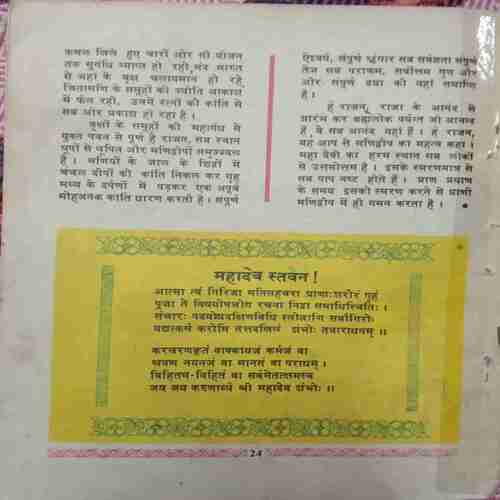 कमल खिले हुए चारों ओर सौ योजन
तक सुगंधि व्याप्त हो रही, मंद मारुत
से वहां के वृक्ष चलायमान हो रहे,
चिंतामणि के समुहों की ज्योति आकाश
में फैल रही, उनमें रत्नों की कांति से
सब ओर प्रकाश हो रहा है।
वृक्षों के समुहों की महागंध से
युक्त पवन से पूर्ण है राजन, सब स्थान
धूपों से धूपित और मणिद्वीपों
है। मणियों के जाल के छिद्रों में
चंचल दीपों की कांति निकल कर गृह
मध्य के दर्पणों में पड़कर एक अपूर्व
मोहजनक कांति धारण करती है। संपूर्ण
ऐश्वर्य, संपूर्ण श्रृंगार सब सर्वज्ञता संपूर्ण
तेज सब पराक्रम, सर्वोत्तम गुण और
और संपूर्ण दया की वहां समाप्ति
है।
हे राजन्, राजा के आनंद से
प्रारंभ कर ब्रह्मलोक पर्यन्त जो आनन्द
है, वे सब आनंद यहाँ हैं। हे राजन,
यह आप से मणिद्वीप का महत्व कहा।
महा देवी का परम स्थान सब लोकों
से उत्तमोत्तम है। इसके स्मरणमात्र से
सब पाप नष्ट होते हैं। प्राण प्रयाण
के समय इसको स्मरण करने से प्राणी
मणिद्वीप में ही गमन करता है। •
महादेव स्तवन!
आत्मा त्वं गिरिजा मतिःसहचरा प्राणाःशरीरं गृहं
पूजा ते विषयोपभोग रचना निद्रा समाधिस्थितिः।
संचारः पदयोःप्रदक्षिणविधि स्तोत्राणि सर्वागिरो-
यद्यत्कर्म करोमि तत्तदखिलं शंभोः तवाराधनम्॥
करचरणकृतं वाक्कायजं कर्मजं वा
श्रवण नयनजं वा मानसं वा पराधम्।
विहितम-विहितं वा सर्वमेतत्क्षमस्व
जय जय करुणाब्धे श्री महादेव शंभोः॥
24